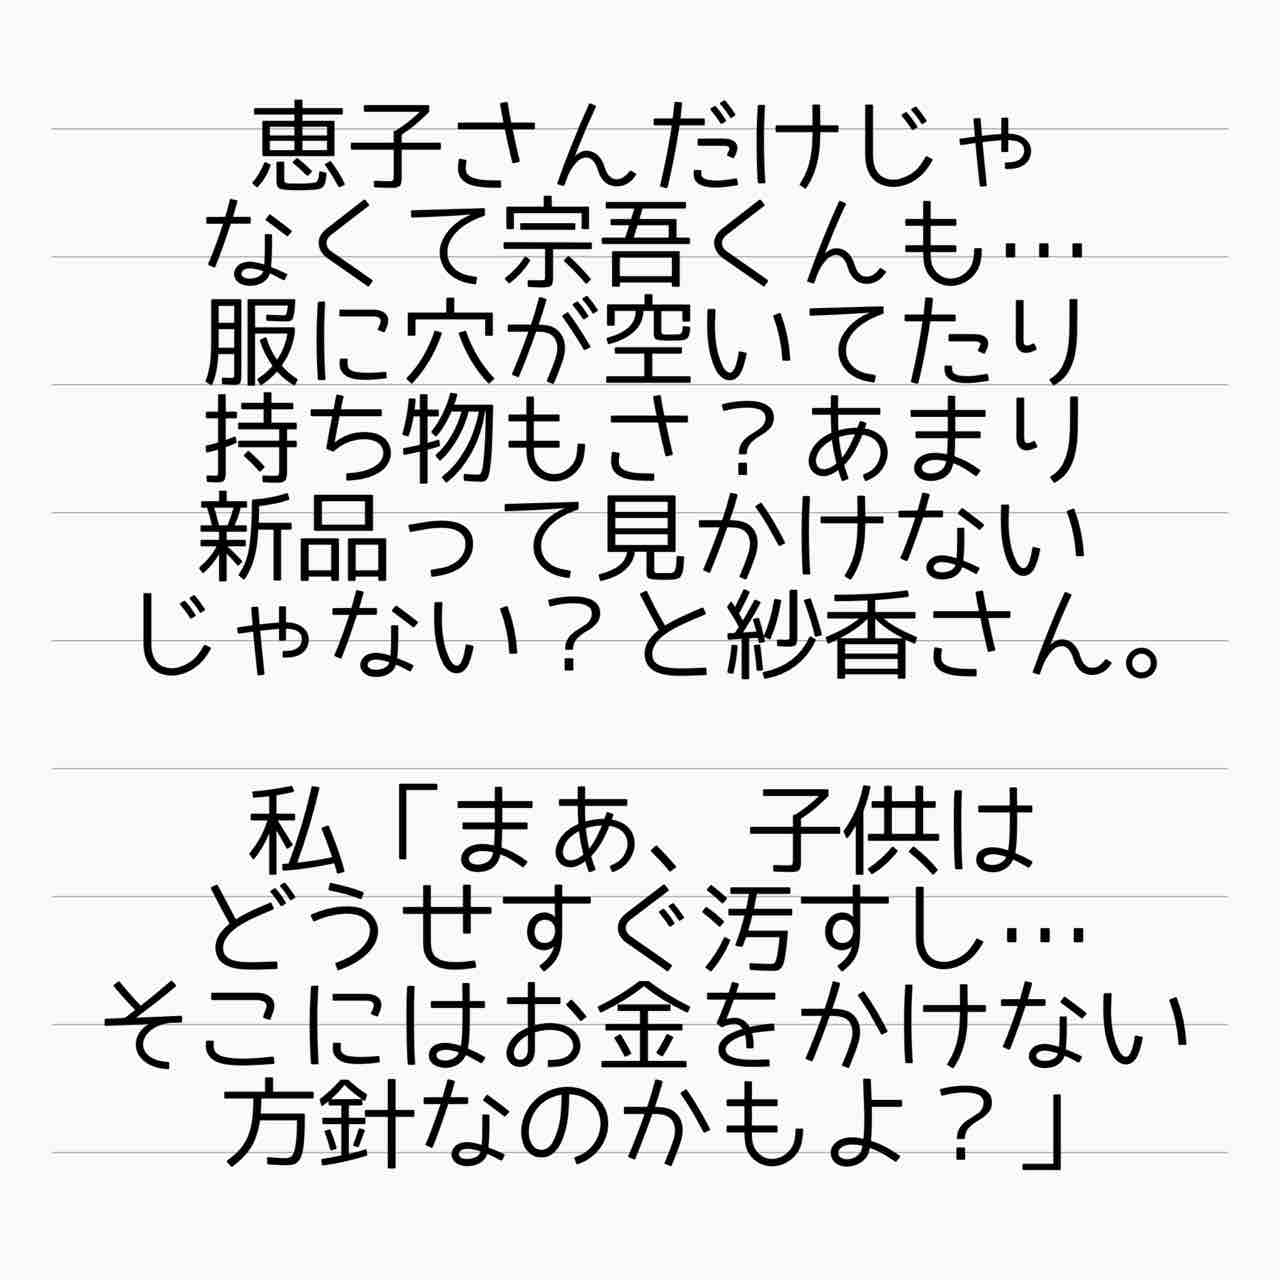 恵子さんだけじゃ
なくて宗吾くんも…
服に穴が空いてたり
持ち物もさ？あまり
新品って見かけない
じゃない？と紗香さん。
私「まあ、子供は
どうせすぐ汚すし…
そこにはお金をかけない
方針なのかもよ？」